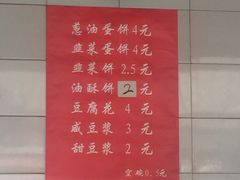 葱油蛋饼4元
韭菜蛋饼4元
韭菜饼2.5元
油酥饼2元
豆腐花4元
咸豆浆3元
甜豆浆2元
空碗0.5元